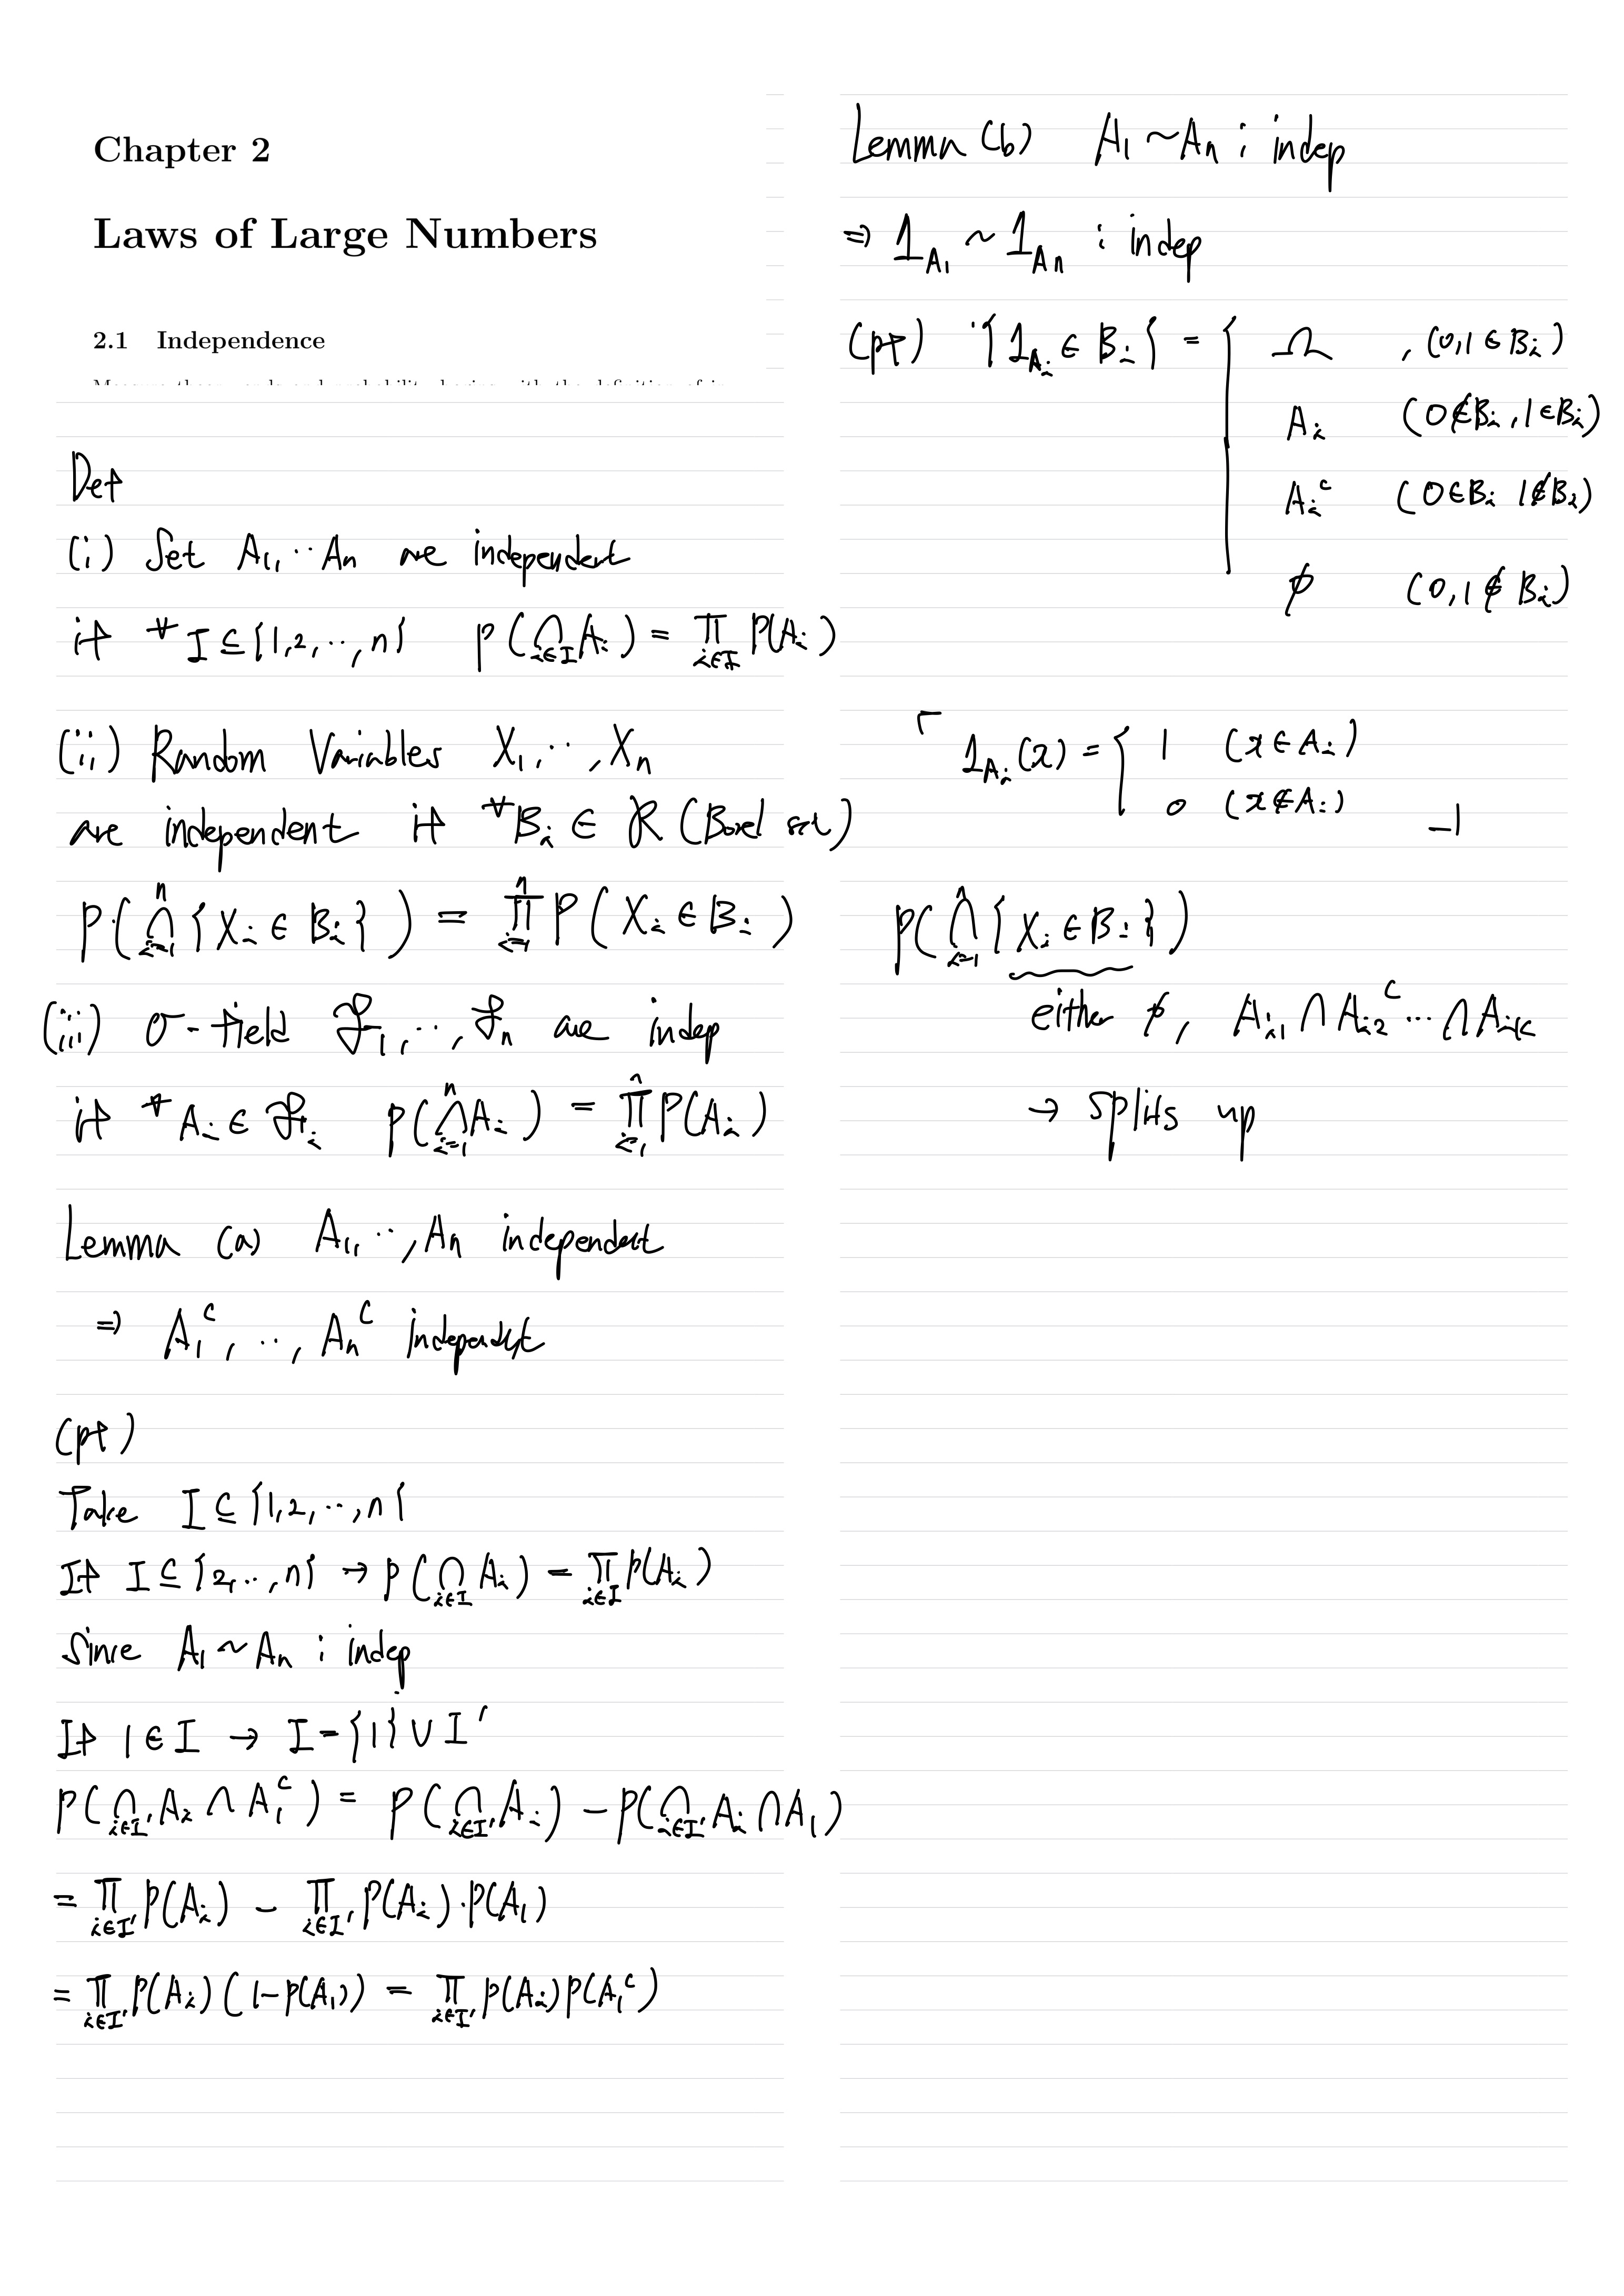 Chapter 2
Laws of Large Numbers
2.1 Independence
Def
(i) Set A₁, ‥ Aₙ are independent
if ∀I ⊆ {1,2,‥,n} P(⋂_{i∈I} Aᵢ) = ∏_{i∈I} P(Aᵢ)
(ii) Random Variables X₁,‥,Xₙ
are independent if ∀Bᵢ ∈ R (Borel set)
P(⋂_{i=1}^n {Xᵢ ∈ Bᵢ}) = ∏_{i=1}^n P(Xᵢ ∈ Bᵢ)
(iii) σ-field ℱ₁,‥,ℱₙ are indep
if ∀Aᵢ ∈ ℱᵢ P(⋂_{i=1}^n Aᵢ) = ∏_{i=1}^n P(Aᵢ)
Lemma (a) A₁,‥,Aₙ independent
⇒ A₁ᶜ,‥,Aₙᶜ independent
(pf)
Take I ⊆ {1,2,‥,n{
If I ⊆ {2,‥,n} → P(⋂_{i∈I} Aᵢ) = ∏_{i∈I} P(Aᵢ)
Since A₁ ~ Aₙ : indep
If 1 ∈ I → I = {1} ∪ I′
P(⋂_{i∈I′} Aᵢ ∩ A₁ᶜ) = P(⋂_{i∈I′} Aᵢ) − P(⋂_{i∈I′} Aᵢ ∩ A₁)
= ∏_{i∈I′} P(Aᵢ) − ∏_{i∈I′} P(Aᵢ)·P(A₁)
= ∏_{i∈I′} P(Aᵢ)(1−P(A₁)) = ∏_{i∈I′} P(Aᵢ)P(A₁ᶜ)
Lemma (b) A₁ ~ Aₙ : indep
⇒ 1_{A₁} ~ 1_{Aₙ} : indep
(pf) {1_{Aᵢ} ∈ Bᵢ} = { Ω , (0,1 ∈ Bᵢ)
Aᵢ (0 ∉ Bᵢ, 1 ∈ Bᵢ)
Aᵢᶜ (0 ∈ Bᵢ 1 ∉ Bᵢ)
∅ (0,1 ∉ Bᵢ)
⌜ 1_{Aᵢ}(x) = { 1 (x ∈ Aᵢ)
0 (x ∉ Aᵢ) ⌟
P(⋂_{i=1}^n {Xᵢ ∈ Bᵢ})
either ∅, A_{i1} ∩ A_{i2}ᶜ ⋯ ∩ A_{ik}
→ splits up